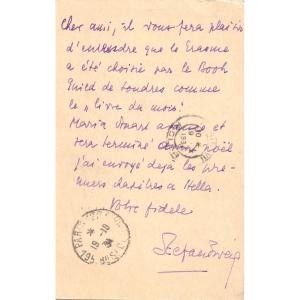 Cher ami, il vous fera plaisir
d'entendre que le Erasme
a été choisie par le Book
Guild de Londres comme
le "livre du mois".
Maria Stuart avance et
sera terminé avant noël
j'ai envoyé déjà les pre-
miers chapitres à Hella.
Votre fidèle
Stefan Zweig
19-10
34